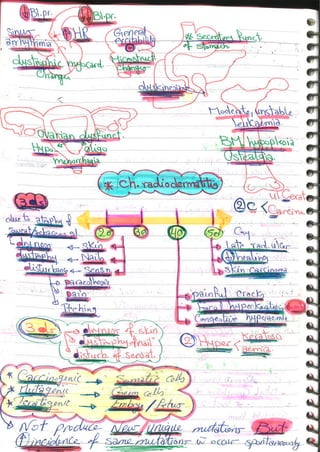 Bl.pr. Bl.pr.
Sinus
arrhythmia
HR
General
excitability
* Secretory Funct.
of Stomach
dystrophic myocard
Changes
Microstruct.
Changes
dyskinesia
Moderate, unstable
leukaemia
Ovarian dysfunct.
Hypo oligo
menorrhagia
BM hypoplasia
Ostealgia
* Ch. radiodermatitis
2 C
ulcerat
Carcinoma
3 ds
due to atrophy of
sweat/sebaceous gl
Dryness ← Skin
dystrophy ← Nails
disturbing ← Sensn
Paraesthesia
Pain
Itching
20 30 40 50
Gy
Late rad ulcer
healing
Skin carcinoma
painful cracks
Focal hyperkeratosis
Congestive hyperaemia
3 ds
dryness of skin
dystrophy of nail
disturb. of sensat.
2 Hyper
Keratosis
aemia
* Carcinogenic → Somatic cells
* Mutagenic → Germ cells
* Teratogenic → Embryo / Fetus
Not produce New unique mutations But
incidence of same mutations w occur spontaneously